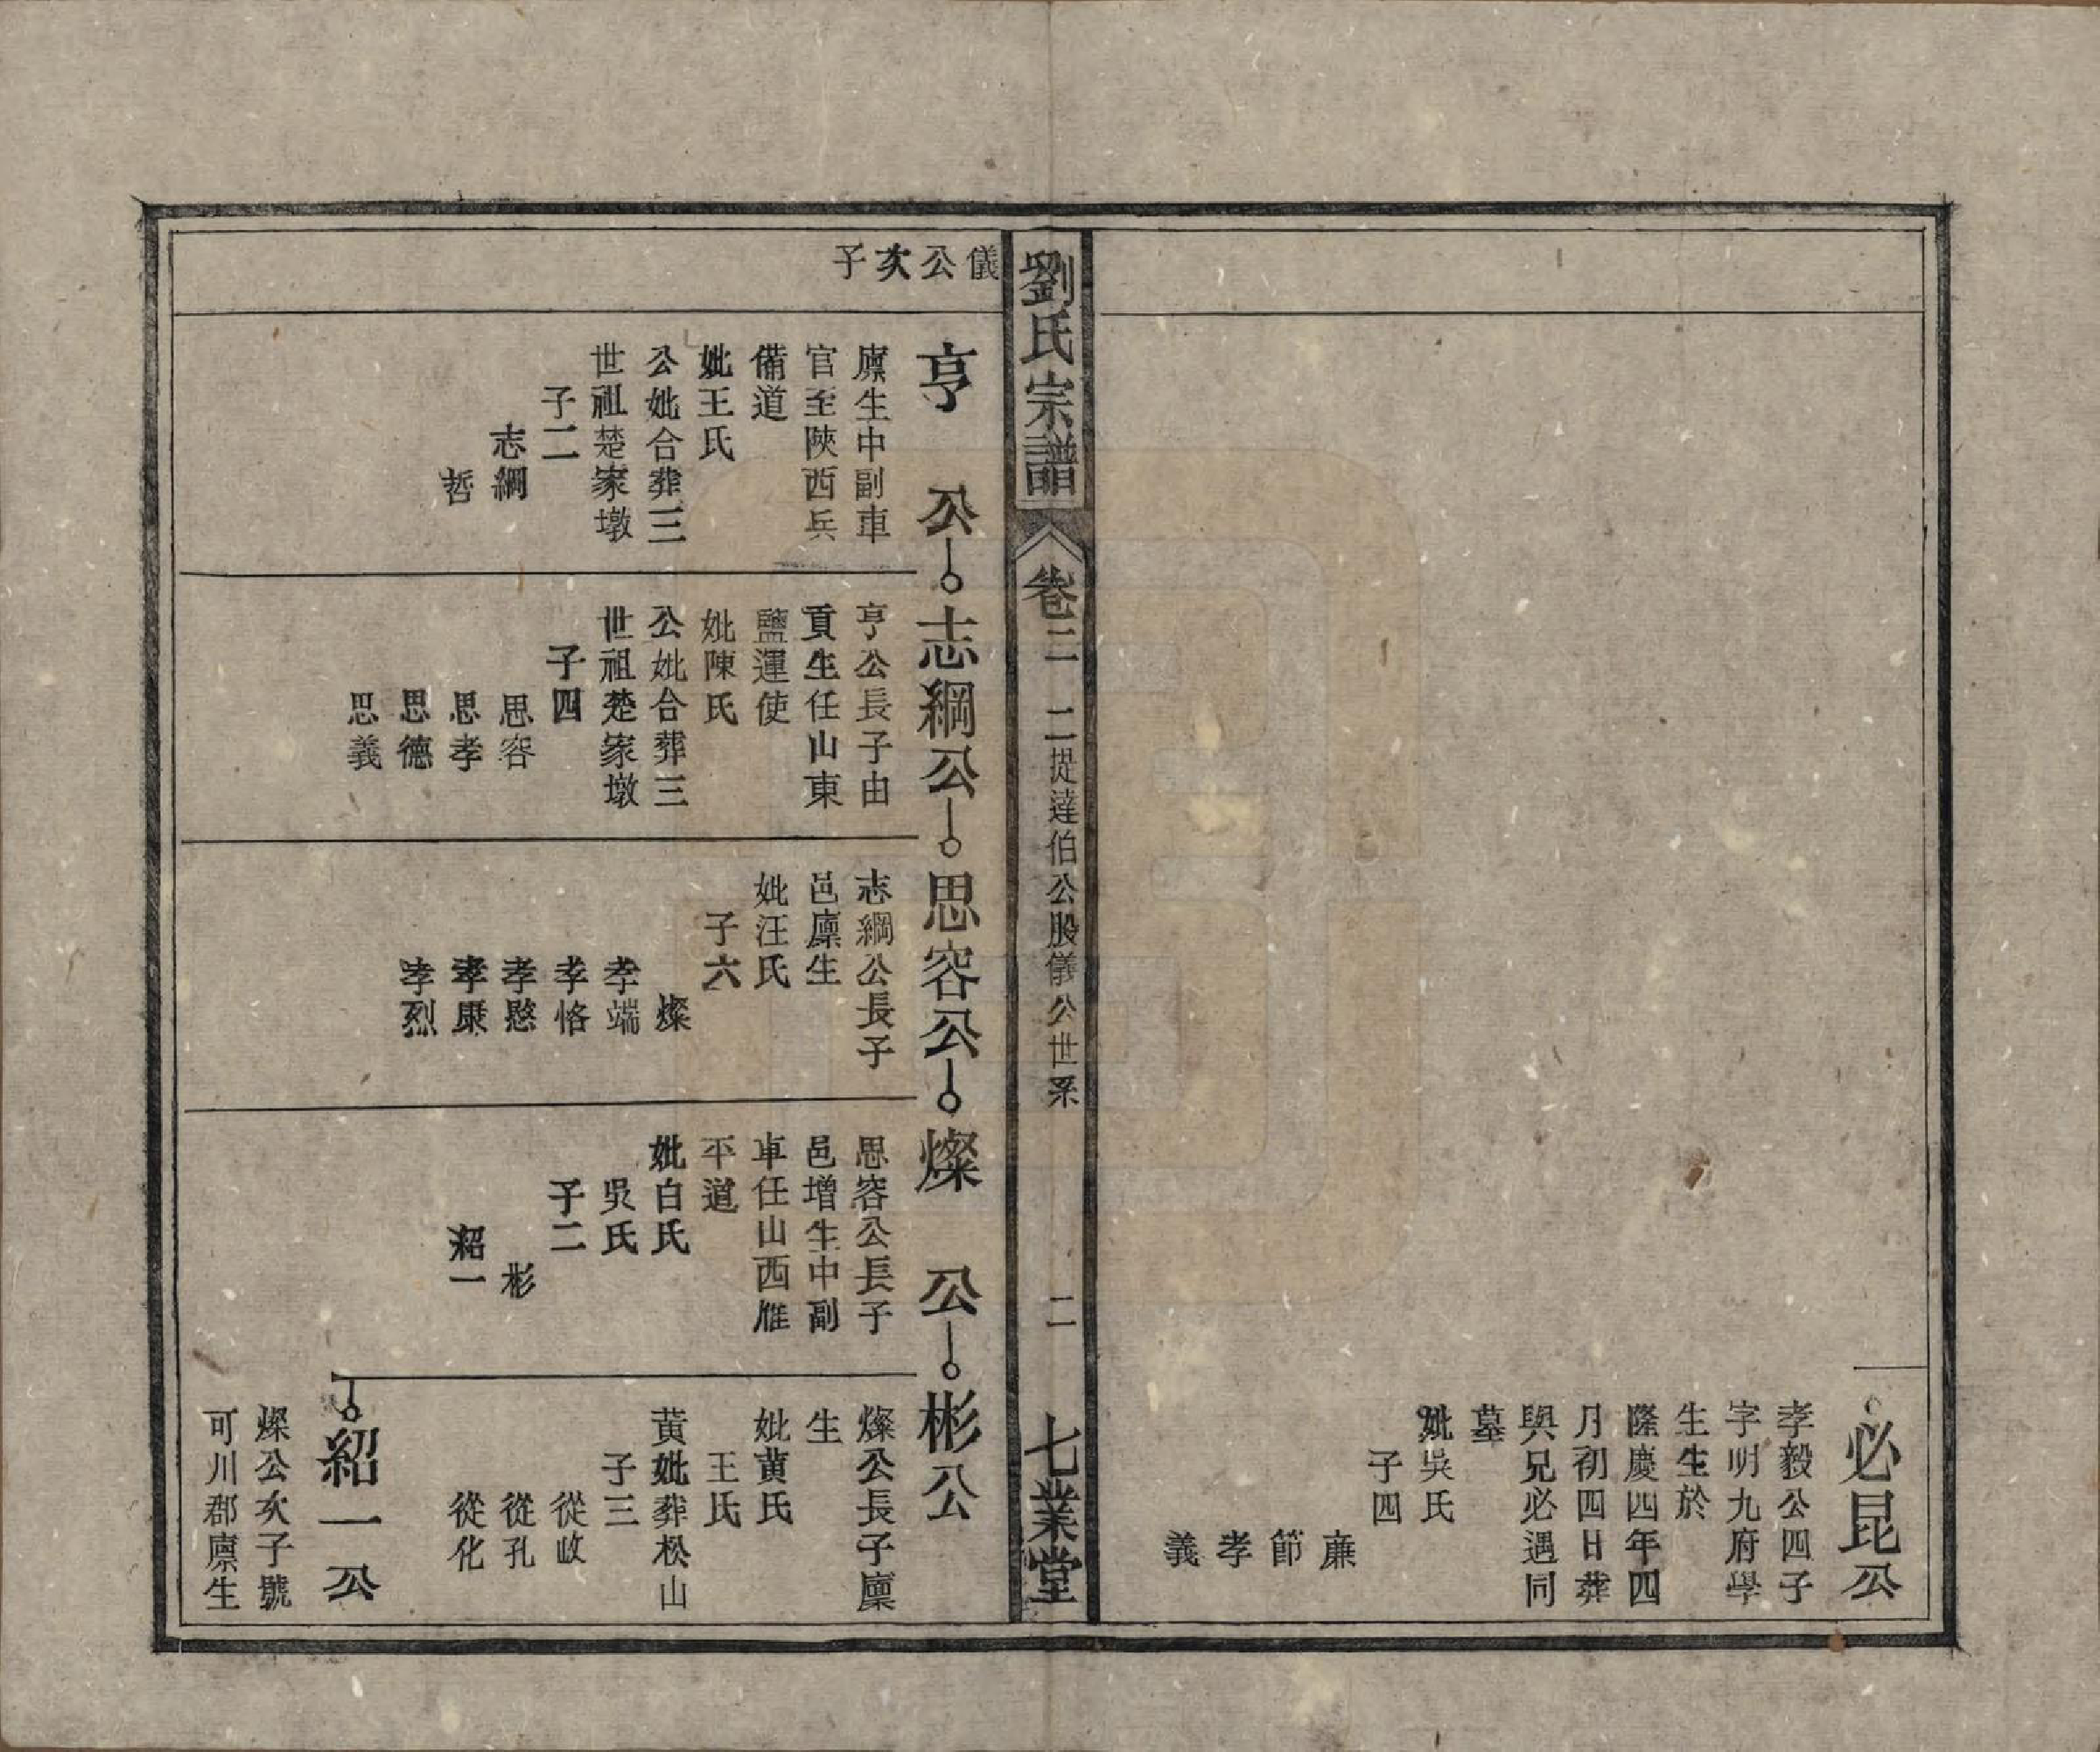 必昆公
孝毅公四子
字明九府學
生生於
隆慶四年四
月初四日葬
與兄必遇同
墓
妣吳氏
子四
廉
節
孝
義
劉氏宗譜
卷二
二提達伯公股儀公世系
二
七業堂
儀公次子
亨公
廩生中副車
官至陝西兵
備道
妣王氏
公妣合葬三
世祖楚家墩
子二
志綱
哲
志綱公
亨公長子由
貢生任山東
鹽運使
妣陳氏
公妣合葬三
世祖楚家墩
子四
思容
思孝
思德
思義
思容公
志綱公長子
邑廩生
妣汪氏
子六
燦
孝端
孝恪
孝愍
孝康
孝烈
燦公
思容公長子
邑增生中副
車任山西雁
平道
妣白氏
吳氏
子二
彬
紹一
彬公
燦公長子廩
生
妣黄氏
王氏
黄妣葬松山
子三
從政
從孔
從化
紹一公
燦公次子號
可川郡廩生